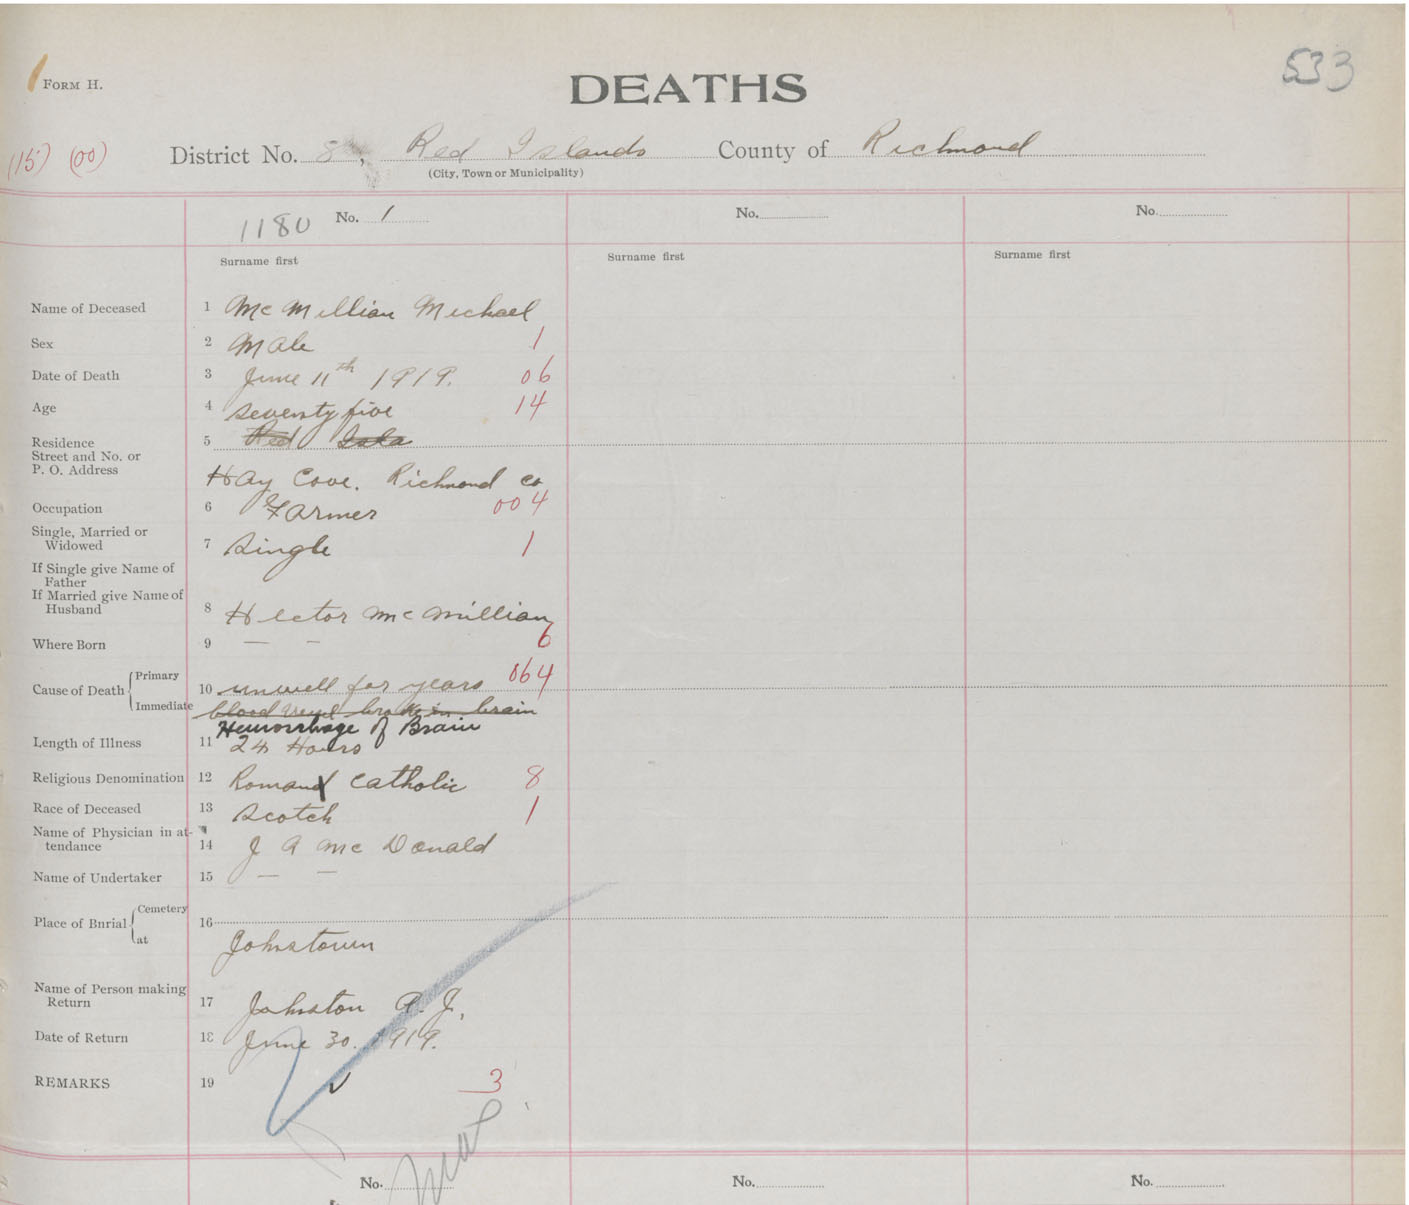 533
FORM H.
DEATHS
(15) (00) District No. 8, Red Islands County of Richmond
(City, Town or Municipality)
1180 No. 1 No. No.
Surname first Surname first Surname first
Name of Deceased 1 Mc Millian Michael
Sex 2 Male 1
Date of Death 3 June 11th 1919. 06
Age 4 seventy five 14
Residence 5 Red Isla
Street and No. or
P. O. Address Hay Cove. Richmond Co
Occupation 6 Farmer 004
Single, Married or
Widowed 7 Single 1
If Single give Name of
Father
If Married give Name of
Husband 8 Hector Mc Millian
Where Born 9 — — 6
Cause of Death Primary 10 unwell for years 064
Immediate blood vessel broke in brain
Hemorrhage of Brain
Length of Illness 11 24 Hours
Religious Denomination 12 Roman Catholic 8
Race of Deceased 13 Scotch 1
Name of Physician in at-
tendance 14 J A Mc Donald
Name of Undertaker 15 — —
Place of Bnrial Cemetery 16
at Johnstown
Name of Person making
Return 17 Johnston A. J.
Date of Return 18 June 30. 1919.
REMARKS 19 3
No. No. No.